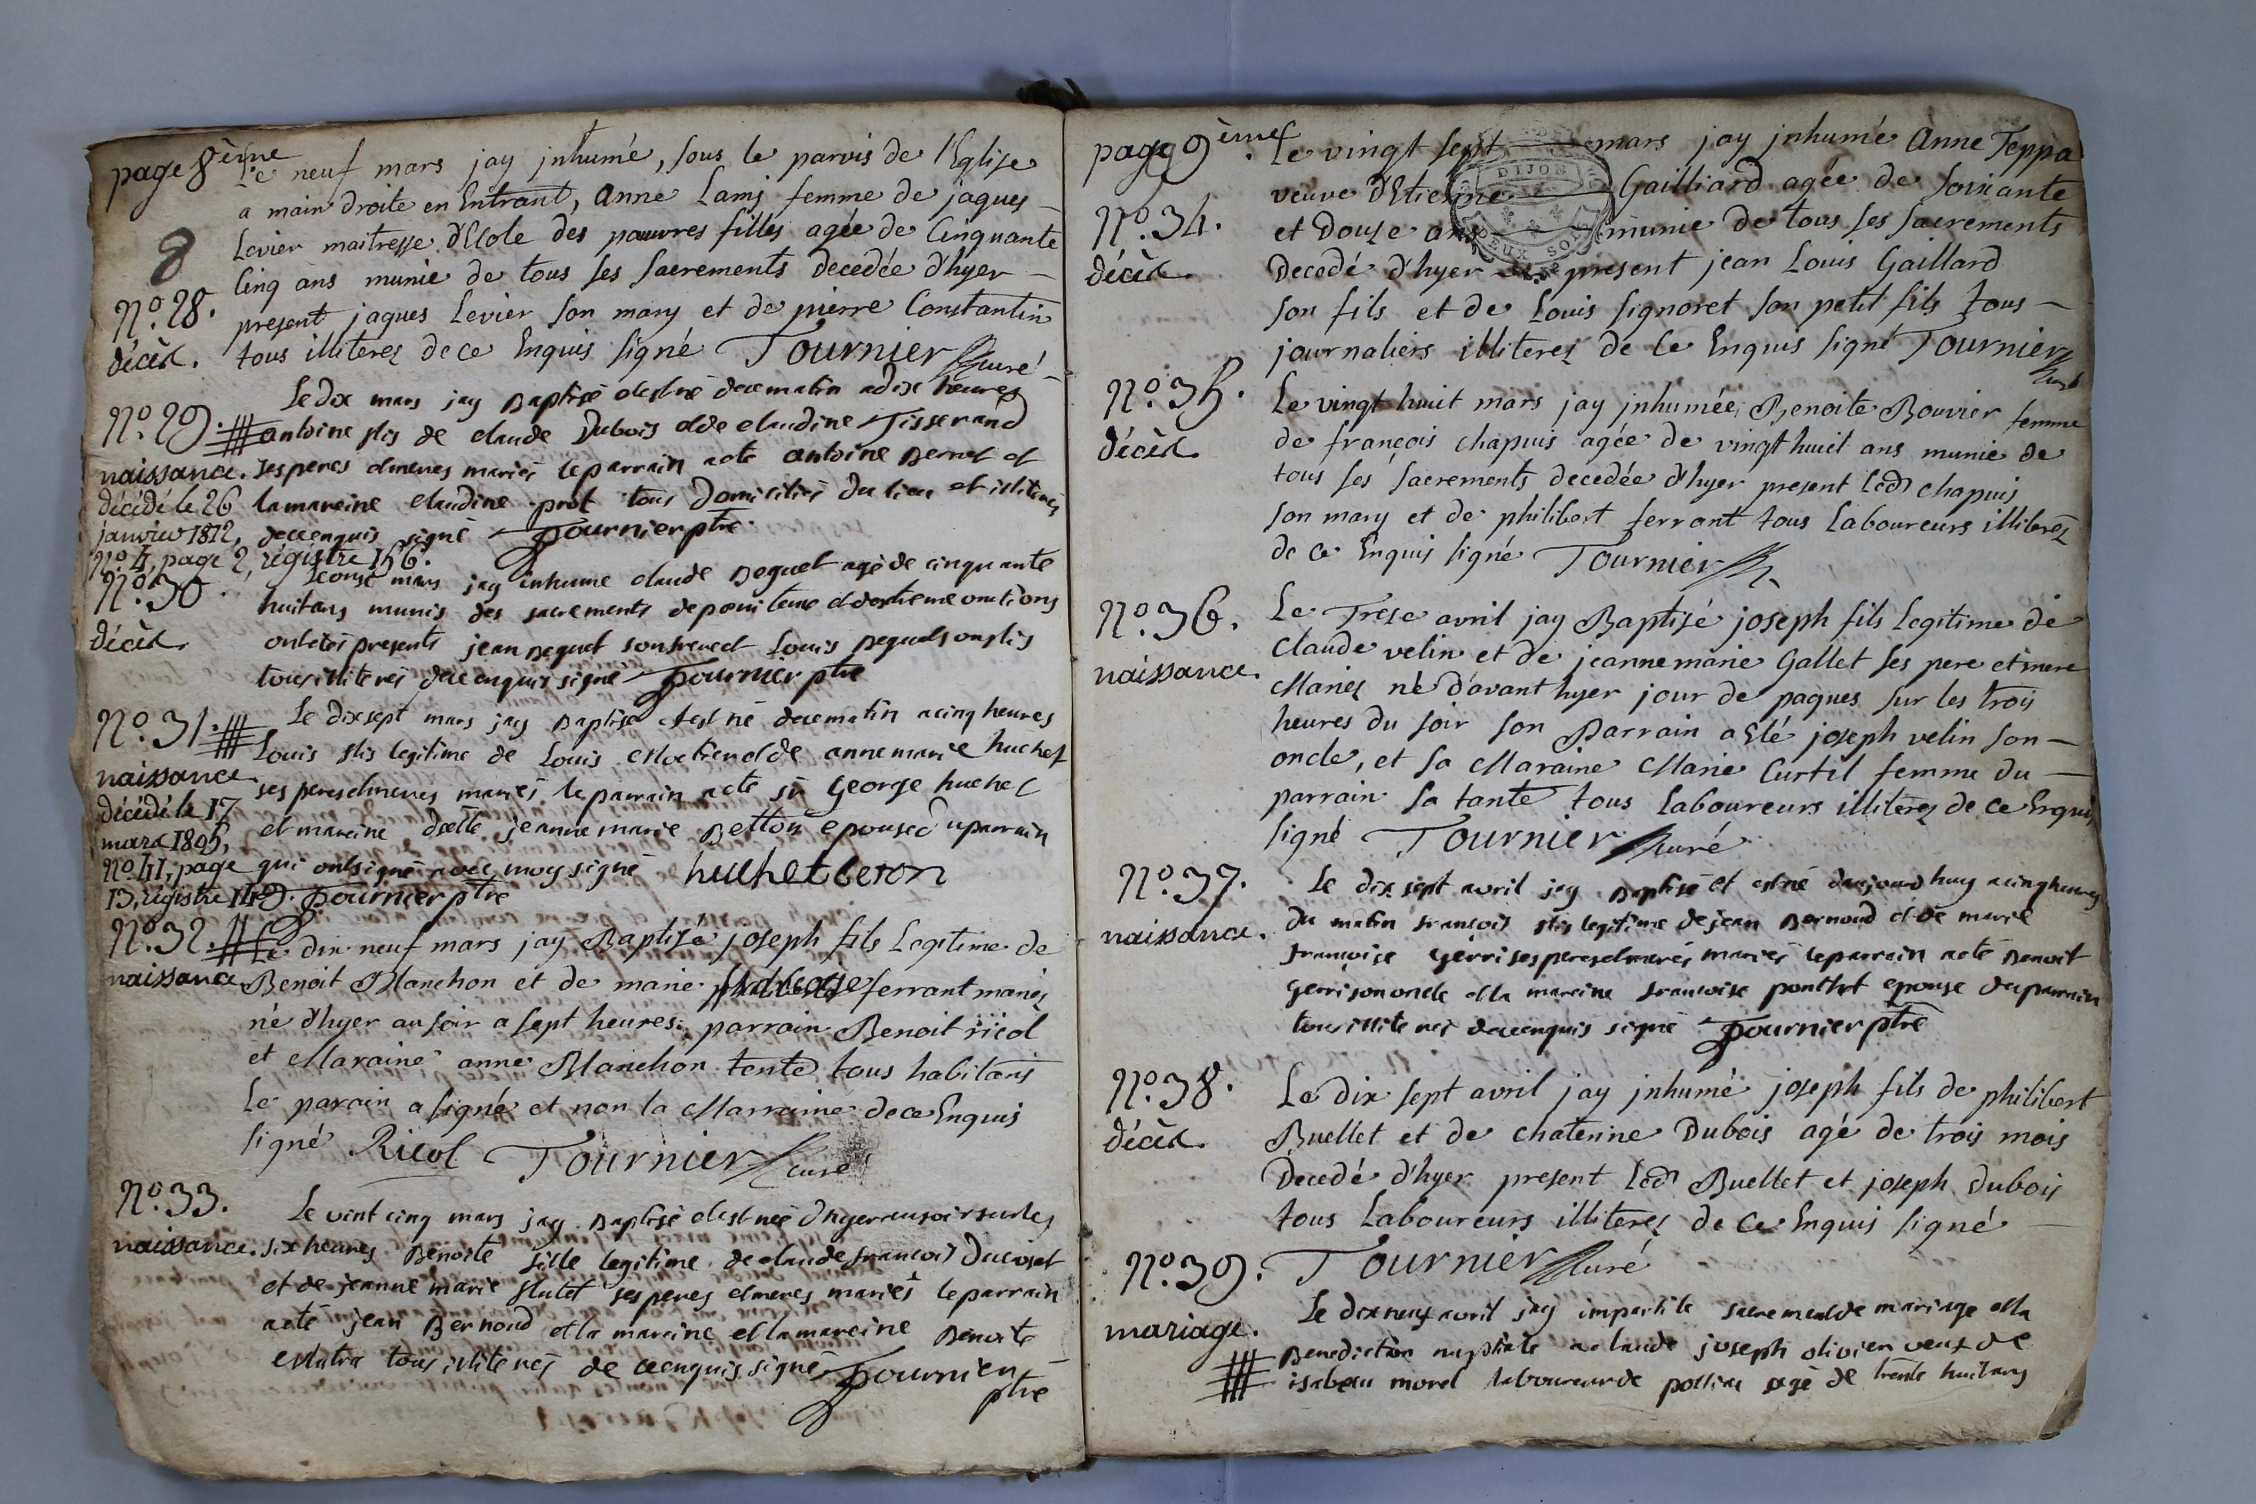 page 8ème
Le neuf mars jay jnhumé, sous le parvis de l'Eglise
a main droite en Entrant, Anne Lami femme de jaques
Levier maitresse d'Ecole des pauvres filles agée de Cinquante
8
Cinq ans munie de tous ses Sacrements decedée d'hyer
No. 28.
present jaques Levier son mary et de pierre Constantin
décès.
tous illiterez de ce Enquis signé Tournier curé
Le dix mars jay Baptisé et est né de ce matin a dix heures
No. 29.
antoine fils de claude Dubois et de claudine Tisserand
naissance.
ses peres et meres mariés le parrain a eté antoine Bernet et
décédé le 26
la mareine claudine prot tous Domiciliés du lieu et illiterés
janvier 1812,
de ce enquis signé Tournier ptre
No. 4, page 2, régistre 156.
No. 30.
Le onse mars jay inhume claude Beguet agé de cinquante
huit ans munis des sacrements de penitence et d'extreme onctions
décès.
ont etéi presents jean Beguet son frere et Louis Beguet son fils
tous illiterés de ce enquis signé Tournier ptre
No. 31.
Le dix sept mars jay Baptisé et est né de ce matin a cinq heures
Louis fils legitime de Louis et de anne marie huchet
naissance
ses peres et meres mariés le parrain a eté sr George huchet
décédé le 17
et mareine jeanne marie Betton epouse du parrain
mars 1805,
No. 41, page
qui ont signé avec moy signé huchet beton
13, régistre 149.
Tournier ptre
No. 32.
Le dix neuf mars jay Baptisé joseph fils Legitime de
naissance
Benoit Blanchon et de marie ferrant mariés
né d'hyer au soir a sept heures; parrain Benoit ricol
et Maraine anne Blanchon tente tous habitans
Le parain a signé et non la Marraine de ce Enquis
signé Ricol Tournier curé
No. 33.
Le vent cinq mars jay Baptisé et est neé d'hyer au soir sur les
naissance.
six heures Benoite fille legitime de claude francois
et de jeanne marie flutet ses peres et meres mariés le parrain
a eté jean Bernoud et la mareine et la mareine Benoite
tous illiterés de ce enquis signé Tournier
ptre
page 9ème
Le vingt sept mars jay jnhumé Anne Teppa
DIJON
veuve d'Etienne Gailliard agée de soixante
No. 34.
et Douze ans munie de tous ses sacrements
DEUX SOLS
décès.
Decedé d'hyer present jean Louis Gaillard
son fils et de Louis signoret son petit fils tous
journaliers illiterez de ce Enquis signé Tournier
curé
No. 35.
Le vingt huit mars jay jnhumée Benoite Bouvier femme
décès.
de françois chapuis agée de vingt huit ans munie de
tous ses sacrements decedée d'hyer present led chapuis
son mary et de philibert ferrant tous Laboureurs illiterez
de ce Enquis signé Tournier
No. 36.
Le Trese avril jay Baptisé joseph fils Legitime de
claude velin et de jeanne marie Gallet ses pere et mere
naissance.
Mariez né d'avant hyer jour de paques sur les trois
heures du soir son Parrain a Eté joseph velin son
oncle, et sa Maraine Marie Curtil femme du
parrain sa tante tous Laboureurs illiterez de ce Enquis
signé Tournier curé
No. 37.
Le dix sept avril jay Baptisé et est né daujourdhuy a cinq heures
du matin francois fils legitime de jean Bernoud et de marie
naissance.
francoise Gerri ses peres et meres mariés le parrain a eté Benoit
Gerri son oncle et la mareine francoise ponthet epouse du parrain
tous illiterés de ce enquis signé Tournier ptre
No. 38.
Le dix sept avril jay jnhumé joseph fils de philibert
décès.
Buellet et de chaterine Dubois agé de trois mois
Decedé d'hyer present led Buellet et joseph Dubois
tous Laboureurs illiterez de ce Enquis signé
No. 39.
Tournier curé
Le dix neuf avril jay imparti le sacrement de mariage et la
mariage.
Benediction nuptiale a claude joseph olivier veuf de
isabeau morel laboureur de agé de trente huit ans